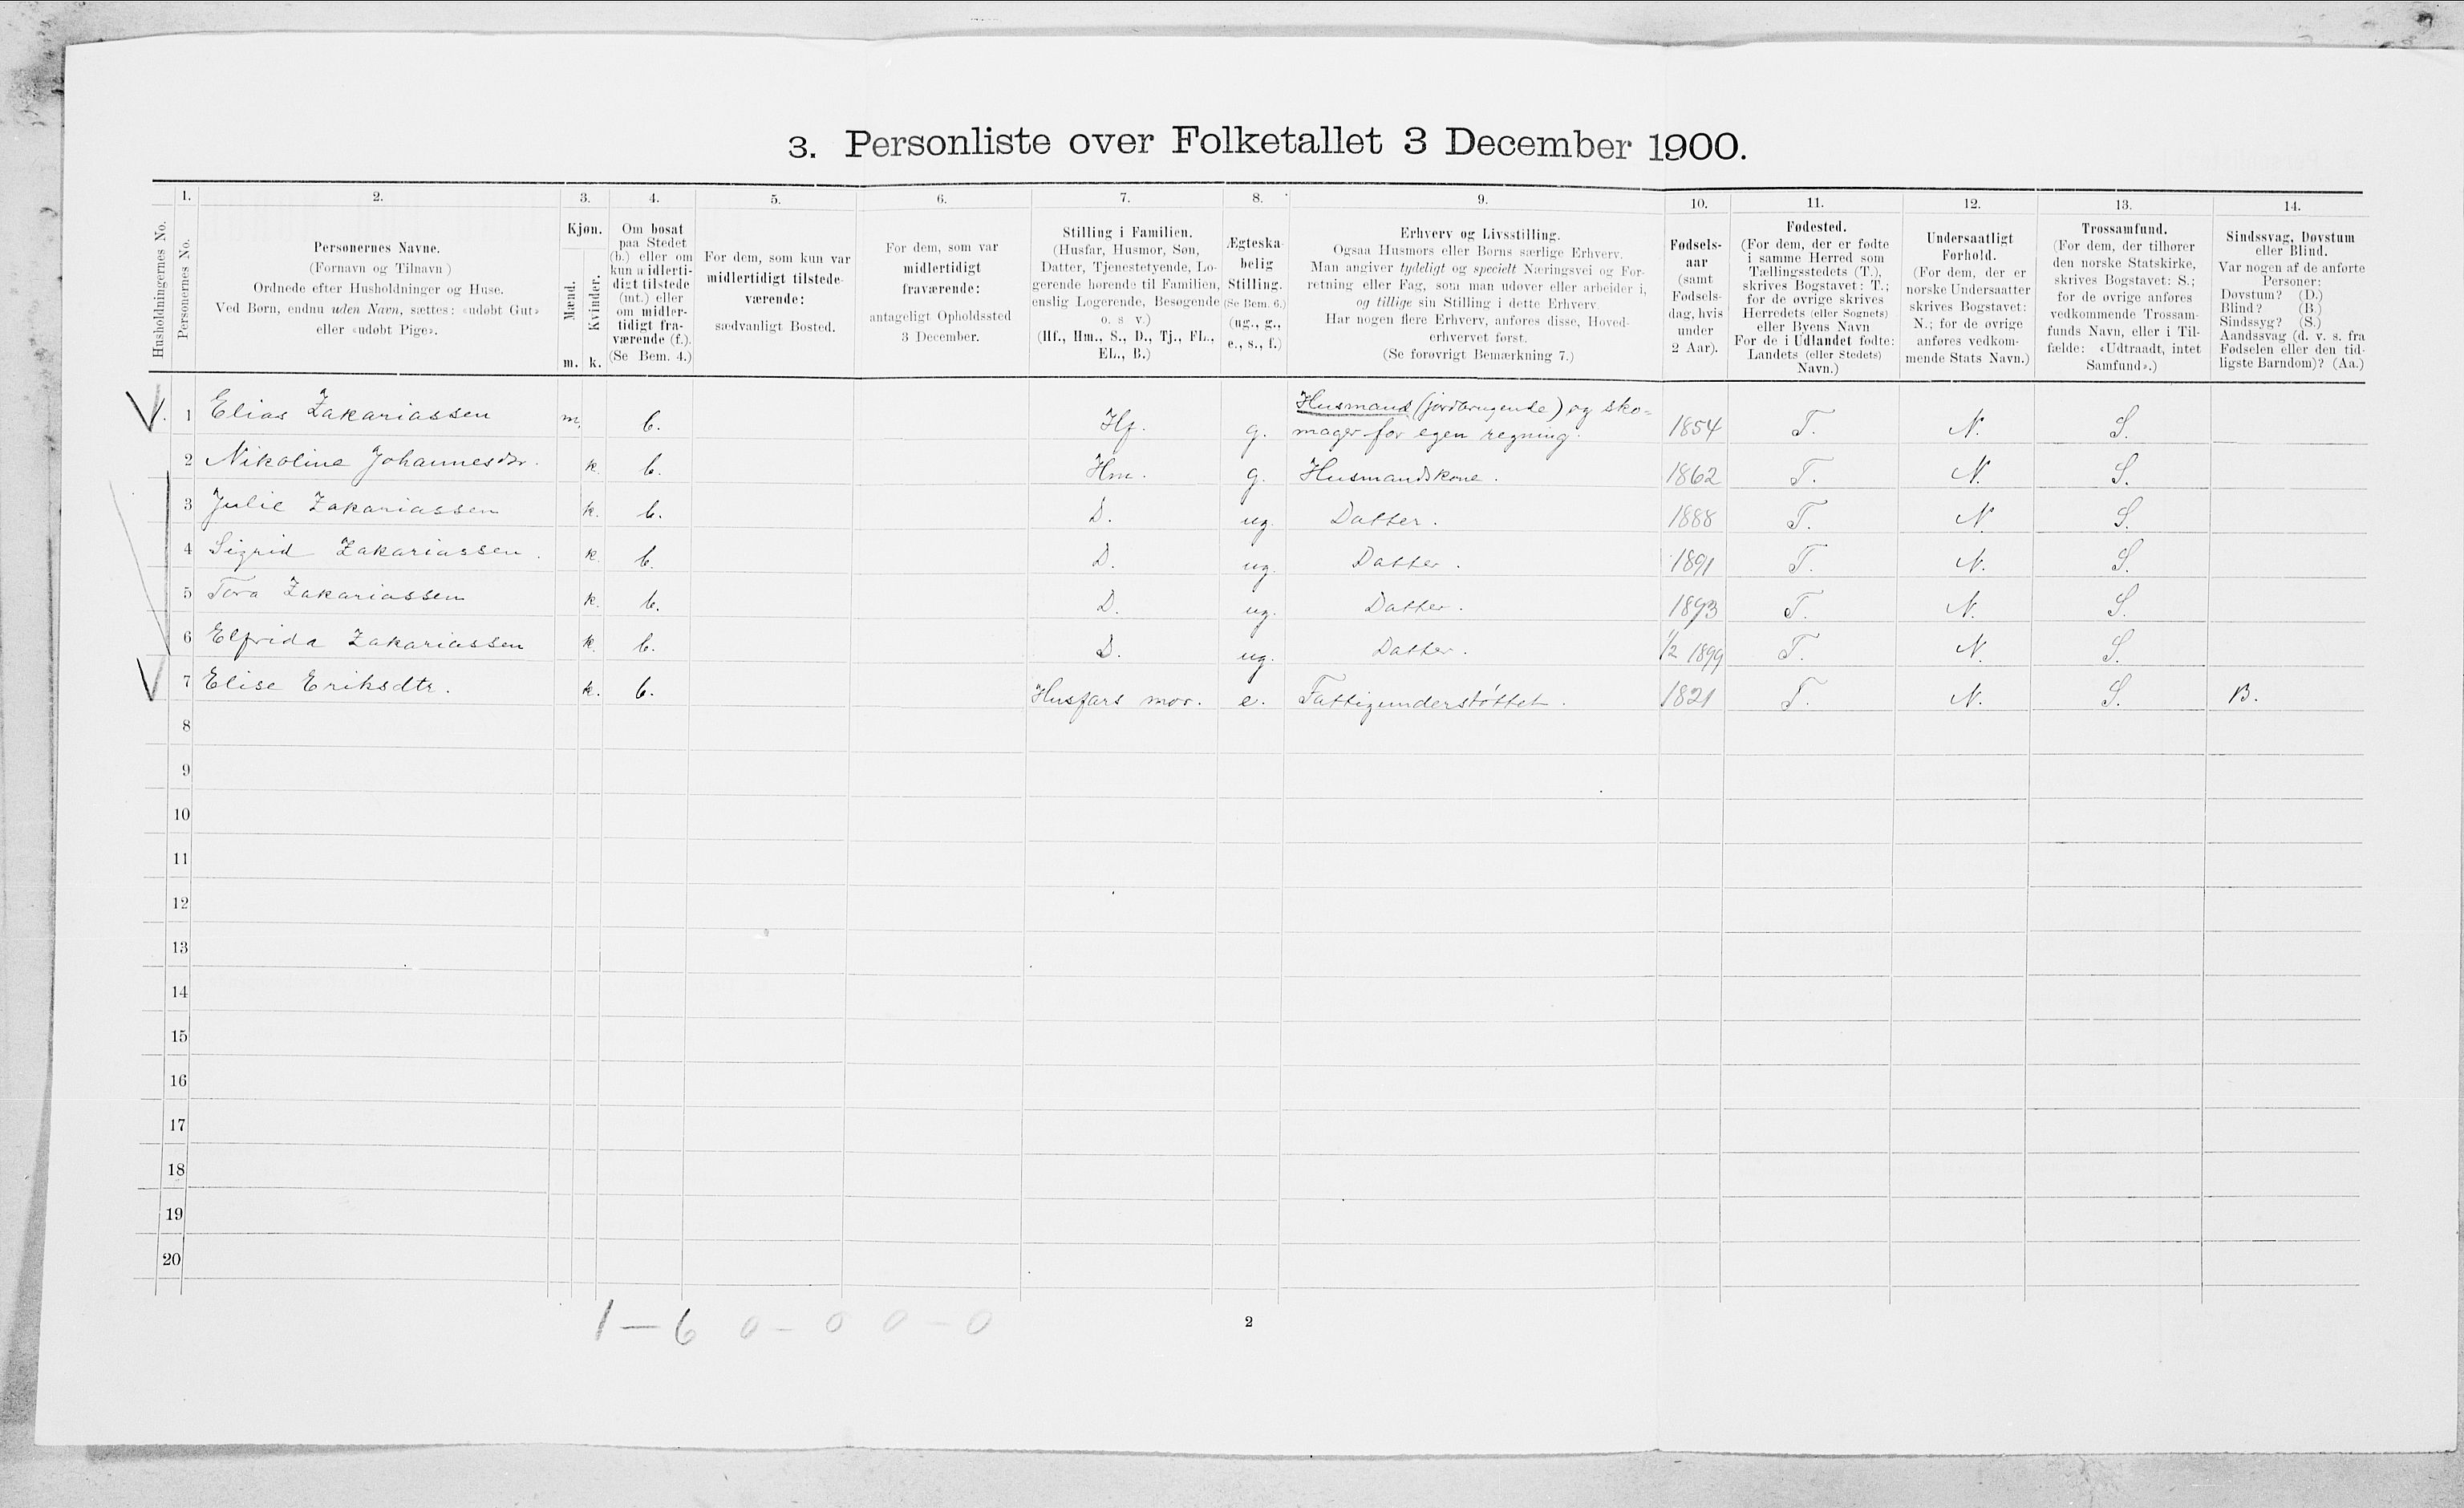 3. Personliste over Folketallet 3 December 1900.
Husholdningernes No.
1.
Personernes No.
2.
Personernes Navne.
(Fornavn og Tilnavn)
Ordnede efter Husholdninger og Huse.
Ved Børn, endnu uden Navn, sættes: «udøbt Gut»
eller «udøbt Pige».
3.
Kjøn.
Mænd.
Kvinder.
m. k.
4.
Om bosat
paa Stedet
(b.) eller om
kun midlerti-
digt tilstede
(mt.) eller
om midler-
tidigt fra-
værende (f.).
(Se Bem. 4.)
5.
For dem, som kun var
midlertidigt tilstede-
værende:
sædvanligt Bosted.
6.
For dem, som var
midlertidigt
fraværende:
antageligt Opholdssted
3 December.
7.
Stilling i Familien.
(Husfar, Husmor, Søn,
Datter, Tjenestetyende, Lo-
gerende hørende til Familien,
enslig Logerende, Besøgende
o. s v.)
(Hf., Hm., S., D., Tj., FL.,
EL., B.)
8.
Ægteska-
belig
Stilling.
(Se Bem. 6.)
(ug., g.,
e., s., f.)
9.
Erhverv og Livsstilling.
Ogsaa Husmors eller Børns særlige Erhverv.
Man angiver tydeligt og specielt Næringsvei og For-
retning eller Fag, som man udøver eller arbeider i,
og tillige sin Stilling i dette Erhverv
Har nogen flere Erhverv, anføres disse, Hoved-
erhvervet først.
(Se forøvrigt Bemærkning 7.)
10.
Fødsels-
aar
(samt
Fødsels-
dag, hvis
under
2 Aar).
11.
Fødested.
(For dem, der er fødte
i samme Herred som
Tællingsstedets (T.),
skrives Bogstavet: T.;
for de øvrige skrives
Herredets (eller Sognets)
eller Byens Navn
For de i Udlandet fødte:
Landets (eller Stedets)
Navn.)
12.
Undersaatligt
Forhold.
(For dem, der er
norske Undersaatter
skrives Bogstavet:
N.; for de øvrige
anføres vedkom-
mende Stats Navn.)
13.
Trossamfund.
(For dem, der tilhører
den norske Statskirke,
skrives Bogstavet: S.;
for de øvrige anføres
vedkommende Trossam-
funds Navn, eller i Til-
fælde: «Udtraadt, intet
Samfund».)
14.
Sindssvag, Døvstum
eller Blind.
Var nogen af de anførte
Personer:
Døvstum? (D.)
Blind? (B.)
Sindssyg? (S.)
Aandssvag (d. v. s. fra
Fødselen eller den tid-
ligste Barndom)? (Aa.)
1 Elias Zakariassen m. b. Hf. g. Husmand (jordbrugende) og sko-
mager for egen regning. 1854 T. N. S.
2 Nikoline Johannesdtr. k. b. Hm. g. Husmandskone. 1862 T. N. S.
3 Julie Zakariassen k. b. D. ug. Datter. 1888 T. N S.
4 Sigrid Zakariassen. k. b. D. ug. Datter. 1891 T. N. S.
5 Tora Zakariassen k. b. D. ug. Datter. 1893 T. N. S.
6 Elfrida Zakariassen k. b. D. ug. Datter. 1/2 1899 T. N. S.
7 Elise Eriksdtr. k. b. Husfars mor. e. Fattigunderstøttet. 1821 T. N. S. B.
8
9
10
11
12
13
14
15
16
17
18
19
20
1 — 6 0 — 0 0 — 0
2